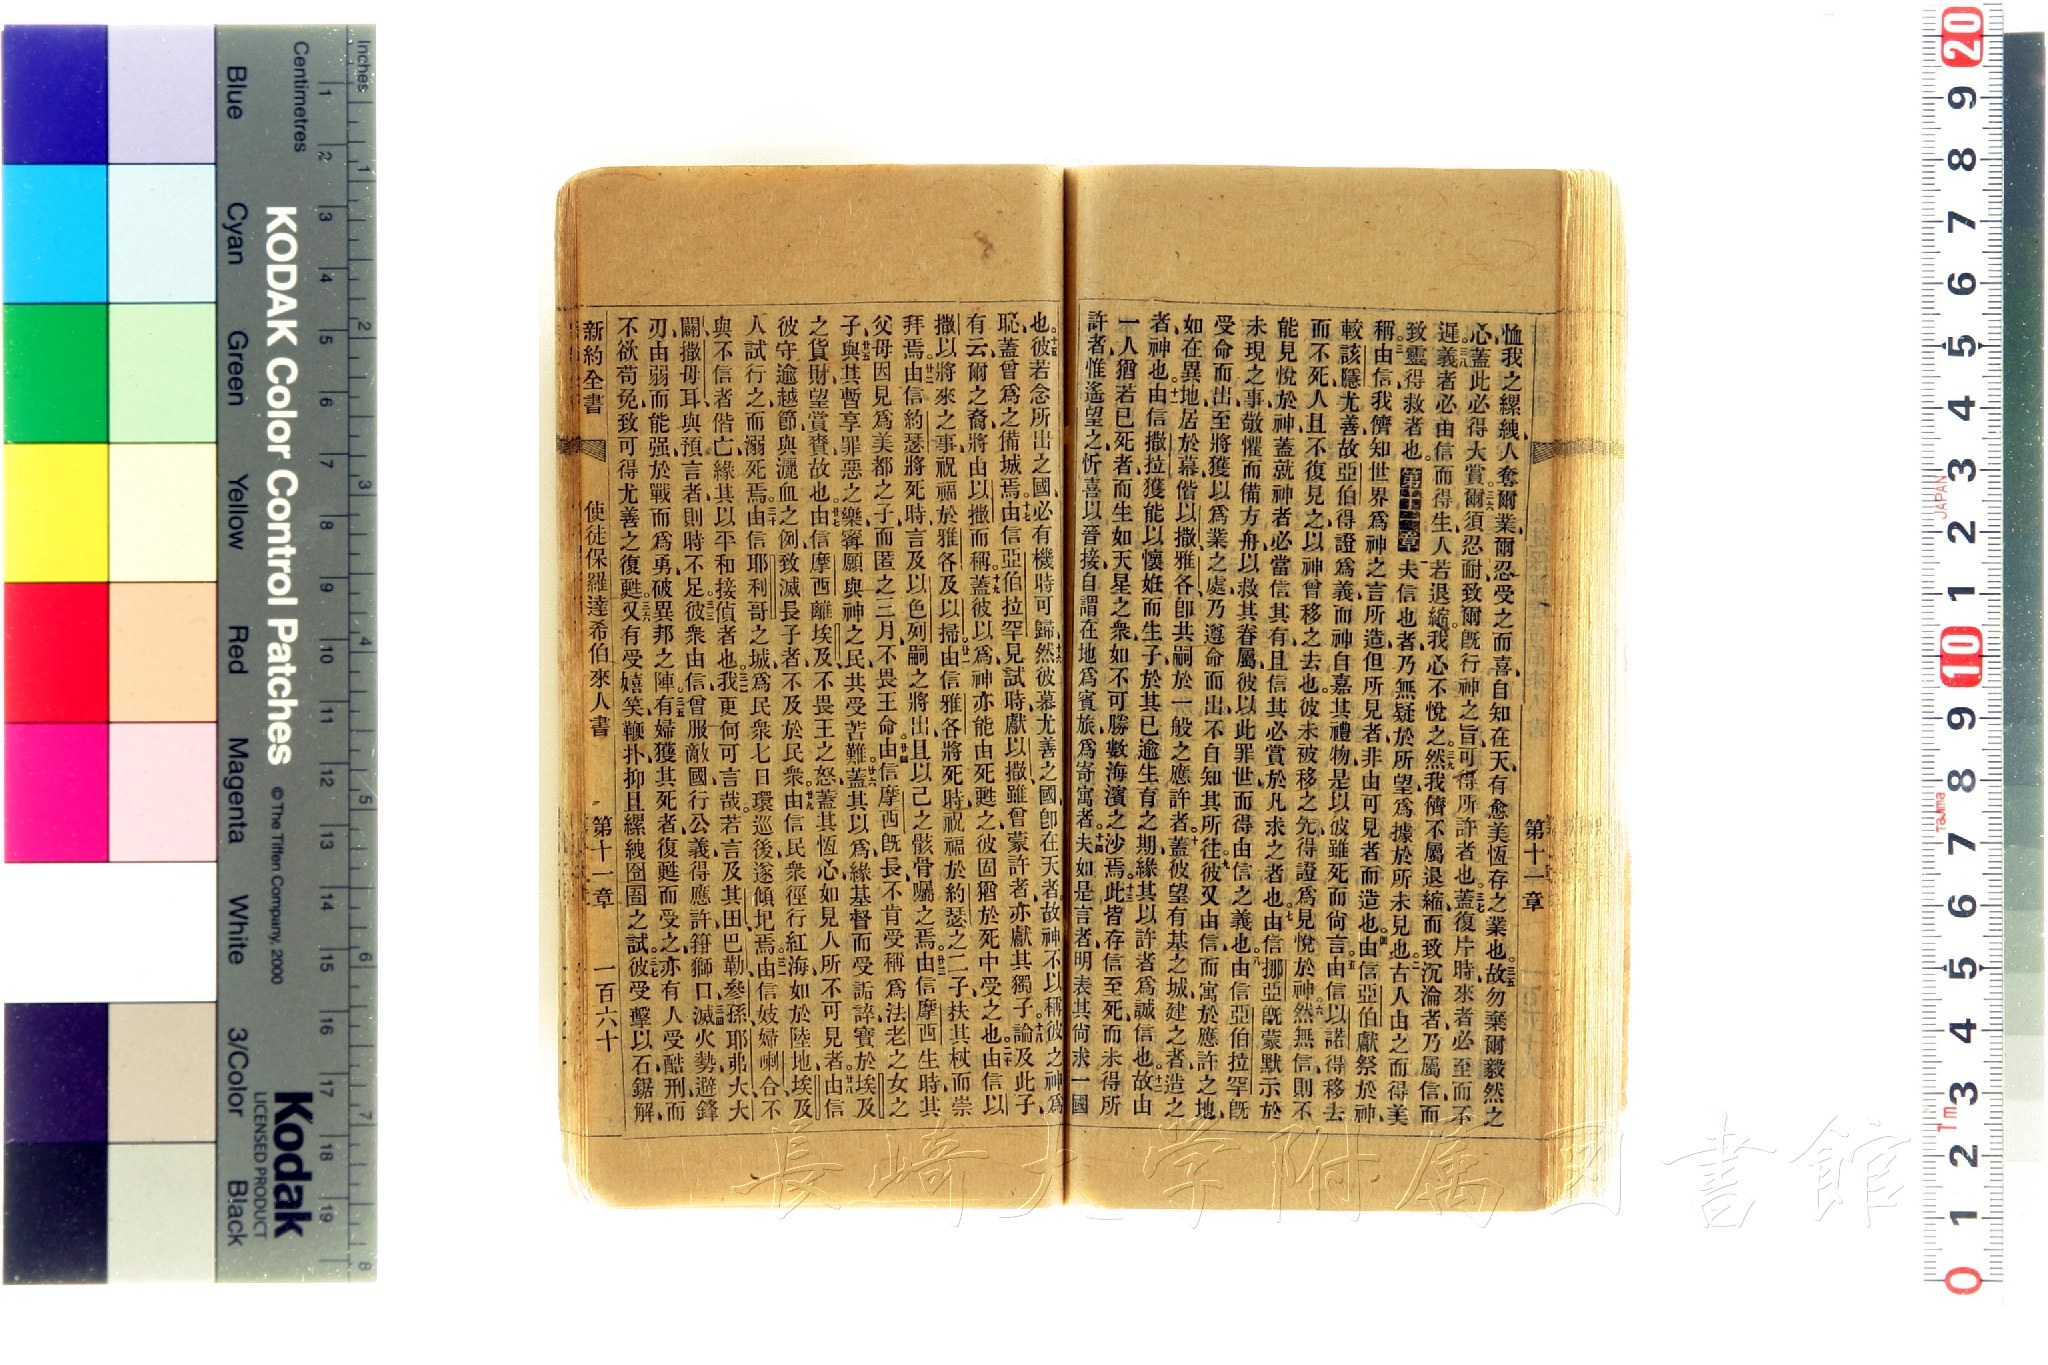 恤我之縲絏、人奪爾業、爾忍受之而喜、自知在天有愈美恆存之業也。三五故勿棄爾毅然之
心、蓋此必得大賞。三六爾須忍耐、致爾旣行神之旨、可得所許者也。三七蓋復片時、來者必至而不
遲。三八義者必由信而得生、人若退縮、我心不悅之。三九然我儕不屬退縮而致沉淪者、乃屬信而
致靈得救者也。第十一章 一夫信也者、乃無疑於所望、爲據於所未見也。二古人由之而得美
稱。三由信、我儕知世界爲神之言所造、但所見者、非由可見者而造也。四由信亞伯獻祭於神、
較該隱尤善、故亞伯得證爲義、而神自嘉其禮物、是以彼雖死而尙言。五由信以諾得移去
而不死、人且不復見之、以神曾移之去也、彼未被移之先、得證爲見悅於神。六然無信則不
能見悅於神、蓋就神者、必當信其有、且信其必賞於凡求之者也。七由信挪亞旣蒙默示於
未現之事、敬懼而備方舟、以救其眷屬、彼以此罪世、而得由信之義也。八由信亞伯拉罕旣
受命而出、至將獲以爲業之處、乃遵命而出、不自知其所往。九彼又由信而寓於應許之地、
如在異地、居於幕、偕以撒雅各、卽共嗣於一般之應許者。十蓋彼望有基之城、建之者造之
者、神也。十一由信撒拉獲能以懷姙而生子、於其已逾生育之期、緣其以許者爲誠信也。十二故由
一人、猶若已死者而生、如天星之衆、如不可勝數海濱之沙焉。十三此皆存信至死、而未得所
許者、惟遙望之、忻喜以晉接、自謂在地爲賓旅、爲寄寓者。十四夫如是言者、明表其尙求一國
第十一章
也。十五彼若念所出之國、必有機時可歸。十六然彼慕尤善之國、卽在天者、故神不以稱彼之神爲
恥、蓋曾爲之備城焉。十七由信亞伯拉罕見試時、獻以撒、雖曾蒙許者、亦獻其獨子。十八論及此子、
有云、爾之裔、將由以撒而稱。十九蓋彼以爲神亦能由死甦之、彼固猶於死中受之也。二十由信以
撒以將來之事、祝福於雅各及以掃。廿一由信雅各將死時、祝福於約瑟之二子、扶其杖而崇
拜焉。廿二由信約瑟將死時、言及以色列嗣之將出、且以己之骸骨囑之焉。廿三由信摩西生時、其
父母因見爲美都之子、而匿之三月、不畏王命。廿四由信摩西旣長、不肯受稱爲法老之女之
子。廿五與其暫享罪惡之樂、寧願與神之民共受苦難。廿六蓋其以爲緣基督而受詬誶、寶於埃及
之貨財、望賞賚故也。廿七由信摩西離埃及、不畏王之怒、蓋其恆心如見人所不可見者。廿八由信
彼守逾越節與灑血之例、致滅長子者不及於民衆。廿九由信民衆徑行紅海、如於陸地、埃及
人試行之而溺死焉。三十由信耶利哥之城、爲民衆七日環巡後、遂傾圮焉。三一由信妓婦喇合不
與不信者偕亡、緣其以平和接偵者也。三二我更何可言哉、若言及其田、巴勒、參孫、耶弗大、大
闢、撒母耳與預言者、則時不足。三三彼衆由信、曾服敵國、行公義、得應許、箝獅口、三四滅火勢、避鋒
刃、由弱而能强、於戰而爲勇、破異邦之陣。三五有婦獲其死者復甦而受之、亦有人受酷刑、而
不欲苟免、致可得尤善之復甦。三六又有受嬉笑、鞭扑、抑且縲絏囹圄之試。三七彼受擊以石、鋸解
新約全書 使徒保羅達希伯來人書 第十一章 一百六十
Inches
Centimetres
KODAK Color Control Patches © The Tiffen Company, 2000
Kodak
LICENSED PRODUCT
Blue Cyan Green Yellow Red Magenta White 3/Color Black
1 2 3 4 5 6 7 8 9 10 11 12 13 14 15 16 17 18 19
1 2 3 4 5 6 7 8
20 9 8 7 6 5 4 3 2 1 10 9 8 7 6 5 4 3 2 1 0
JAPAN
Tajima
1m
長崎大学附属図書館